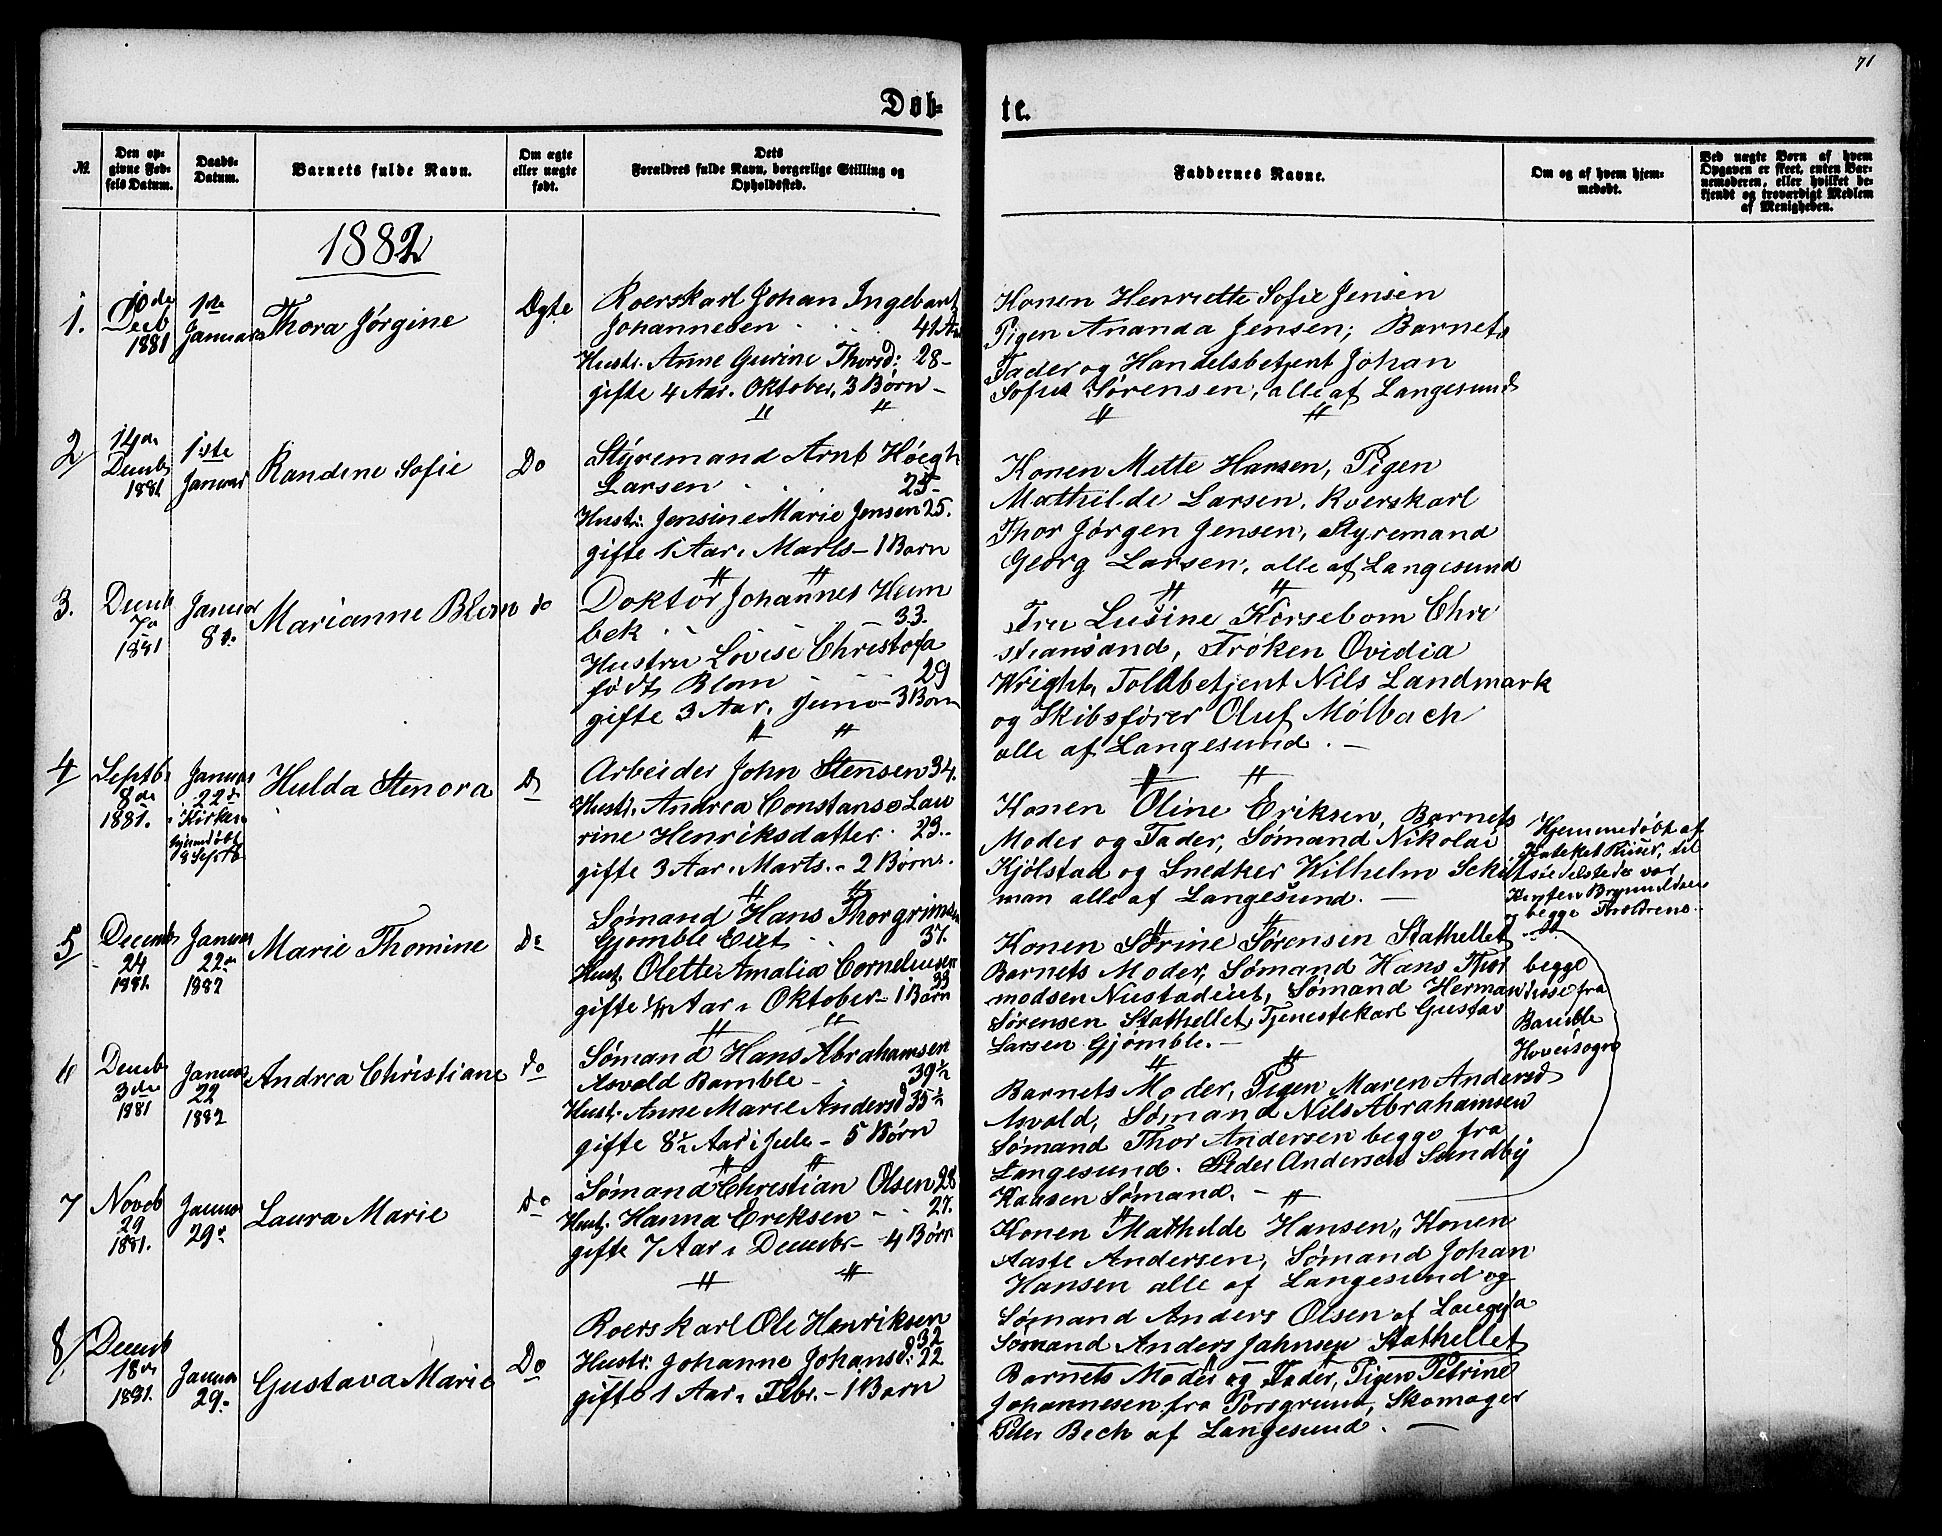 71
Døb-
te.
№
Den op-
givne Fød-
sels Datum.
Daabs-
Datum.
Barnets fulde Navn.
Om ægte
eller uægte
født.
Dets
Forældres fulde Navn, borgerlige Stilling og
Opholdssted.
Faddernes Navne.
Om og af hvem hjem-
medøbt.
Ved uægte Børn af hvem
Opgaven er skeet, enten Bar-
nemoderen, eller hvilket be-
kjendt og troværdigt Medlem
af Menigheden.
1882
1.
10de
Decb
1881
1ste
Januar
Thora Jørgine
Ægte
Roerskarl Johan Ingebart
Johannesen 41 Aar
Hustr. Anne Gurine Thorsd: 28-
gifte 4 Aar. Oktober, 3 Børn -
Konen Henriette Sofie Jensen
Pigen Ananda Jensen; Barnets
Fader og Handelsbetjent Johan
Sofus Sørensen, alle af Langesund
2
14de
Decemb
1881
1ste
Januar
Randine Sofie
Do
Styremand Arnt Høegh
Larsen 25-
Hustr: Jensine Marie Jensen 25.
gifte 1 Aar i Marts - 1 Barn
Konen Mette Hansen, Pigen
Mathilde Larsen, Roerskarl
Thor Jørgen Jensen, Styremand
Georg Larsen, alle af Langesund
3.
Decemb
7de
1881
Januar
8de
Marianne Blom
do
Doktor Johannes Heim
bek 33.
Hustru Lovise Christofa
født Blom 29
gifte 3 Aar. Juni - 3 Børn
Fru Lusine Korsebom Chri
stiansand, Frøken Ovidia
Wright, Toldbetjent Nils Landmark
og Skibsfører Oluf Mølbach
alle af Langesund. -
4
Septb
8de
1881.
Januar
22de
i Kirken
hjemdøbt
8 Septb
Hulda Stenora
Do
Arbeider John Stensen 34.
Hustr. Andrea Constanse Lau
rine Henriksdatter 23.
gifte 3 Aar i Marts. - 2 Børn.
Konen Oline Eriksen, Barnets
Moder og Fader, Sømand Nikolai
Kjølstad og Snedker Wilhelm Schit
man alle af Langesund. -
Hjemmedøbt af
til
stede var
begge Forældrene.
5
Decemb
24
1881.
Januar
22de
1882
Marie Thomine
Do
Sømand Hans Thorgrimsen
Gjømble Eiet 37.
Hust. Olette Amalia Corneliusen
33
gifte 1/4 Aar i Oktober - 1 Barn
Konen Sørine Sørensen Stathellet
Barnets Moder, Sømand Hans Thor
modsen Nustadeiet, Sømand Herman
Sørensen Stathellet, Tjenestekarl Gustav
Larsen Gjømble. -
begge
disse fra
Bamble
Hovedsogn
6
Decemb
3de
1881
Januar
22
1882
Andrea Christiane
do
Sømand Hans Abrahamsen
Asvold Bamble - 39½
Hust. Anne Marie Andersd 35½
gifte 8½ Aar i Jule - 5 Børn
Barnets Moder, Pigen Maren Andersd
Asvold, Sømand Nils Abrahamsen
Sømand Thor Andersen begge fra
Langesund. Peder Andersen Sundby
Kaasen Sømand. -
7
Novb
29
1881.
Januar
29de
Laura Marie
Do
Sømand Christian Olsen 28
Hust. Hanna Eriksen 27.
gifte 7 Aar i Decembr - 4 Børn
Konen Mathilde Hansen, Konen
Aaste Andersen, Sømand Johan
Hansen alle af Langesund og
Sømand Anders Olsen af Langøya
Sømand Anders Jahnsen Stathellet
8
Decemb
18de
1881.
Januar
29.
Gustava Marie
Do
Roerskarl Ole Henriksen
32
Hustr: Johanne Johansd: 22
gifte 1 Aar i Febr. - 1 Barn
Barnets Moder og Fader, Pigen Petrine
Johannesen fra Porsgrund, Skomager
Peter Bech af Langesund. -